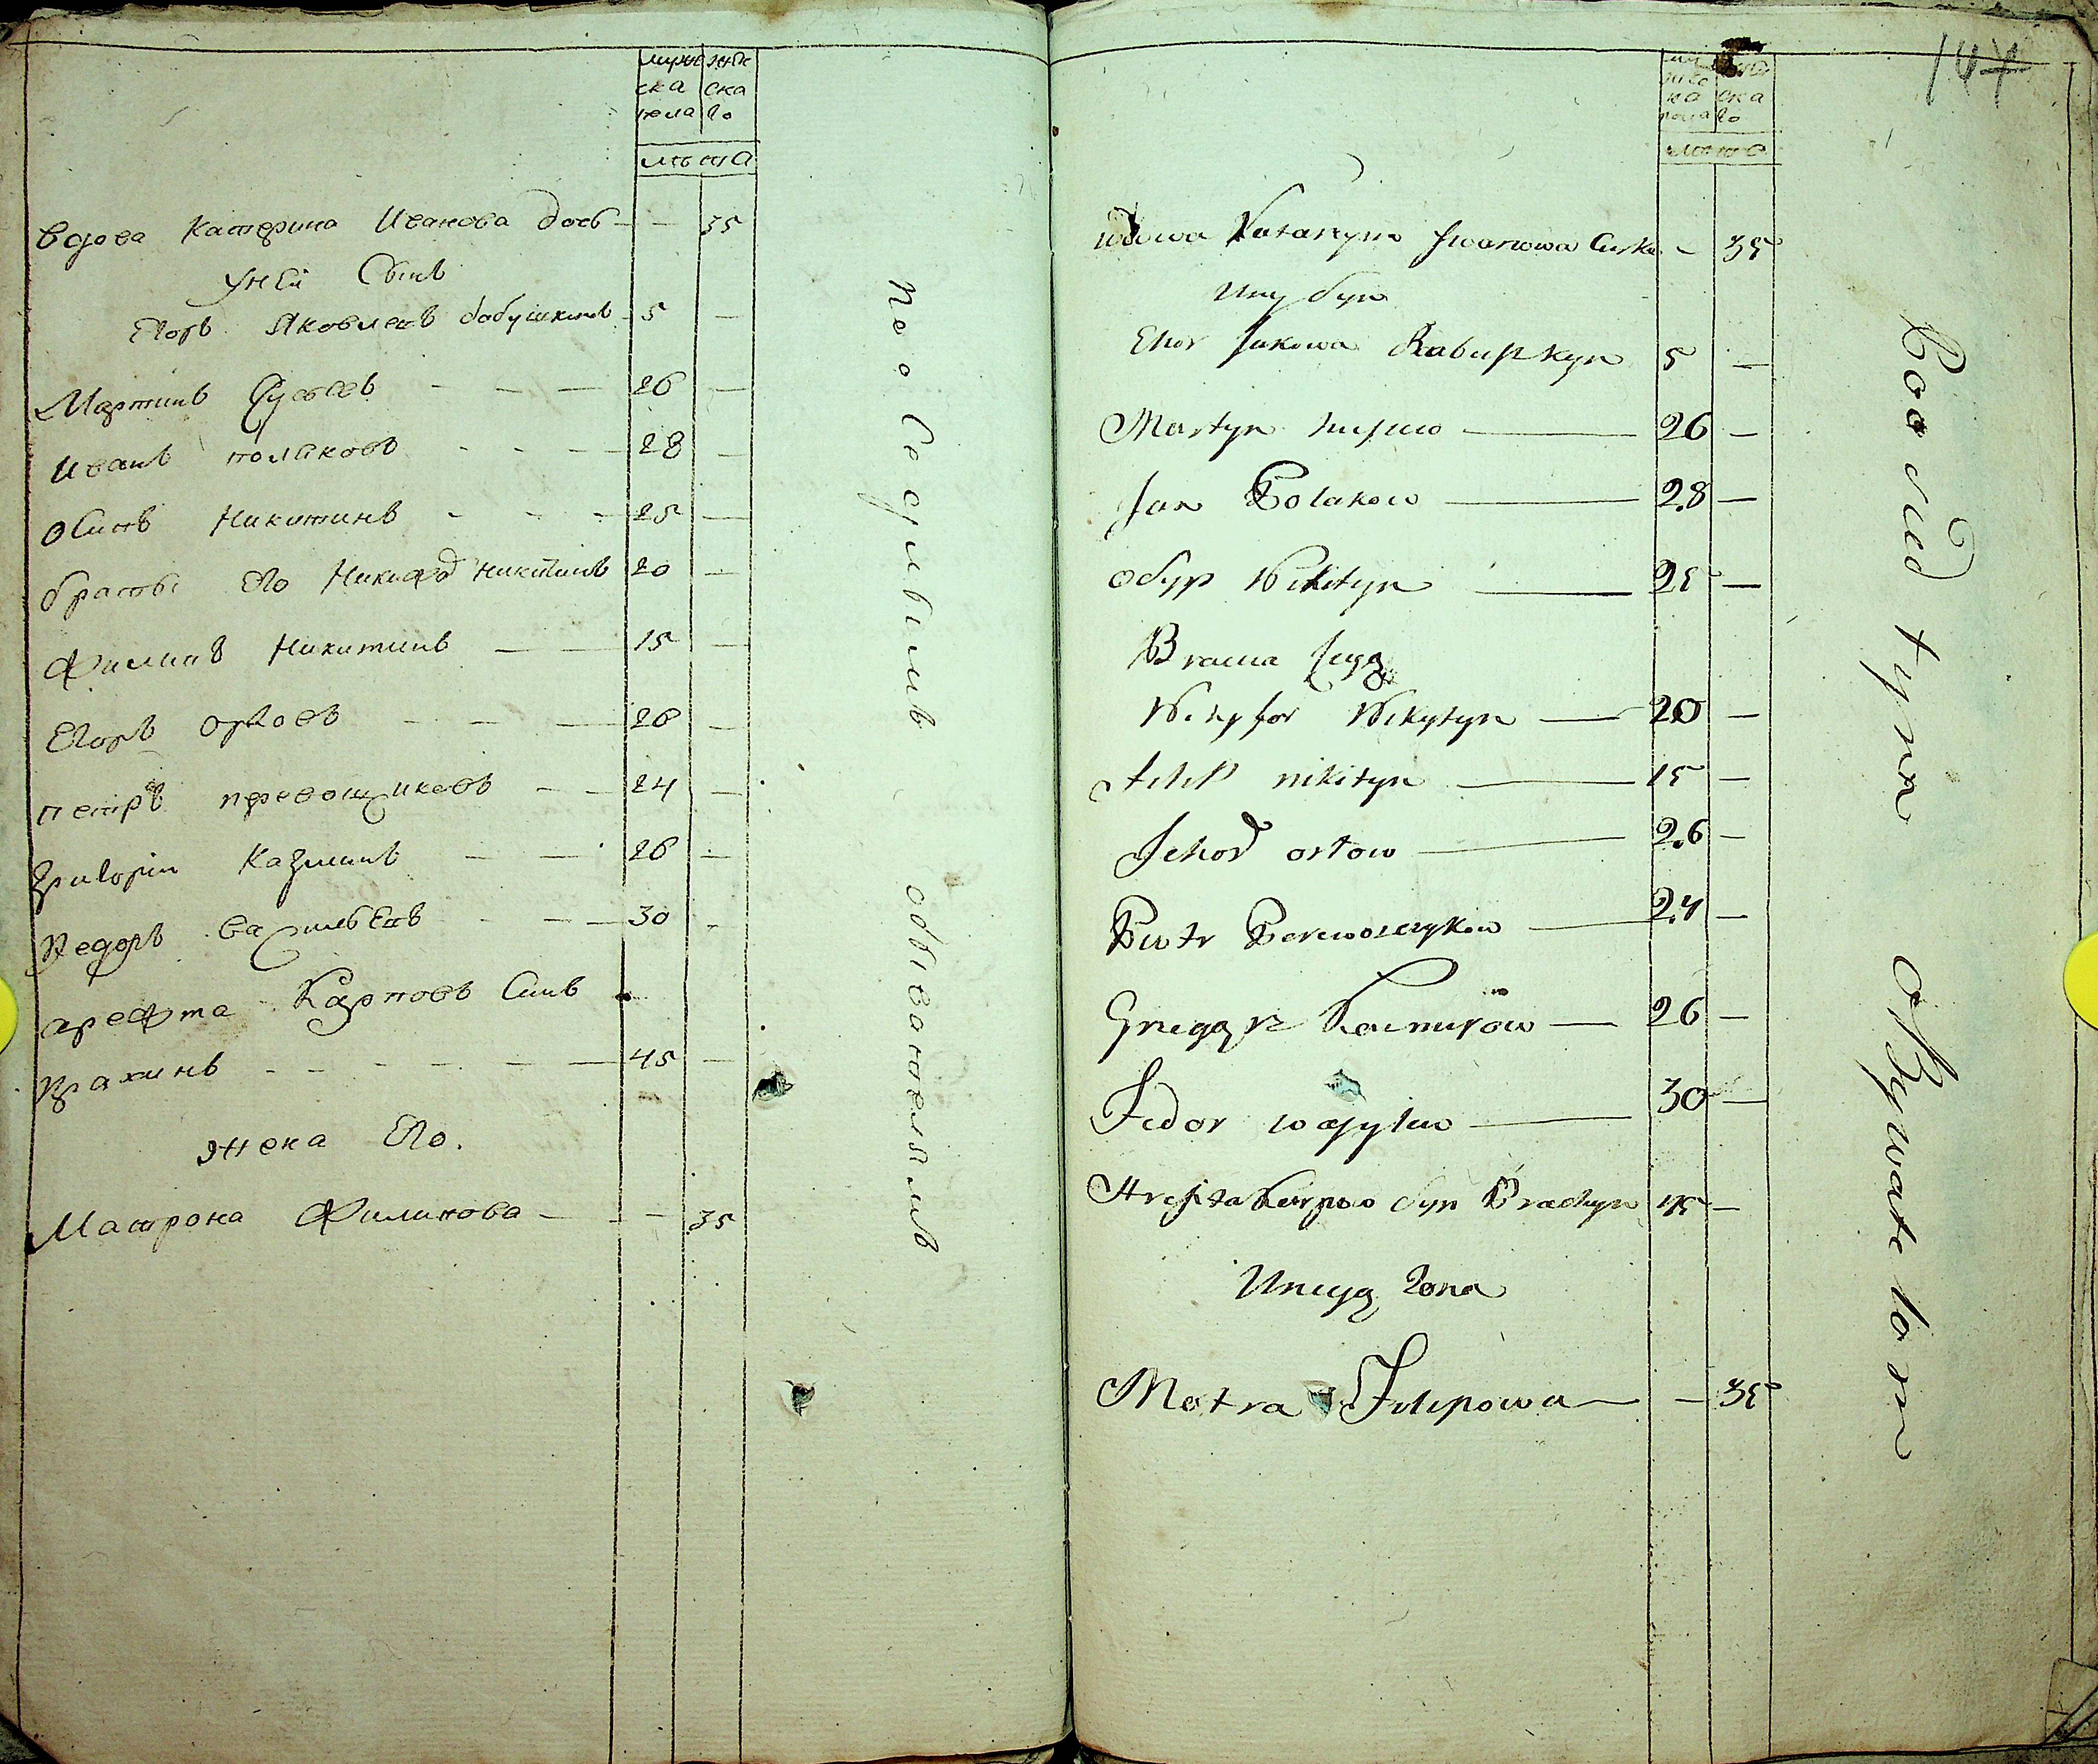 мужс жен
ска ска
пола го
лѣта
вдова Катерина Иванова дочь - — 35
унеи Сынъ
Егоръ Яковлевъ бабушкинъ - 5 —
Мартинъ Гусевъ - — — 26 —
Иванъ поляковъ - - - — 28 —
Осипъ Никитинъ - - - 25 —
братьы его Никифоръ Никитинъ 20 —
Филипъ Никитинъ — — 15 —
Егоръ орловъ - — — 26 —
петръ превощиковъ - — 24 —
григорiи Казминъ — — 26 —
Федоръ васильевъ - — — 30 -
арефта Карповъ Сынъ
Брахинъ - - - - — — 45 —
жена его.
Матрона Филипова - - — 35
по Сосѣдѣмъ обывателямъ
147
ска
пола го
лѣта
wdowa Katarzyna Jwanowa Curka - 35
Uny Syn
Ehor Jakowa Babuszkyn 5 —
Martyn — 26 —
Jan Polakow — 28 —
Osyp Nikityn — 25 —
Bracia Jego
Nikyfor Nikytyn — 20 —
Filip nikityn — 15 —
Jehor orłow — 26 —
Piotr Perewoszczykow — 24 —
Gregorz Kaźmirow — 26 —
Fedor wasylew — 30 —
Arefta Karpow Syn Brachyn 45 —
Uniego Zona
Motra Filipowa — — 35
Po obywatelom